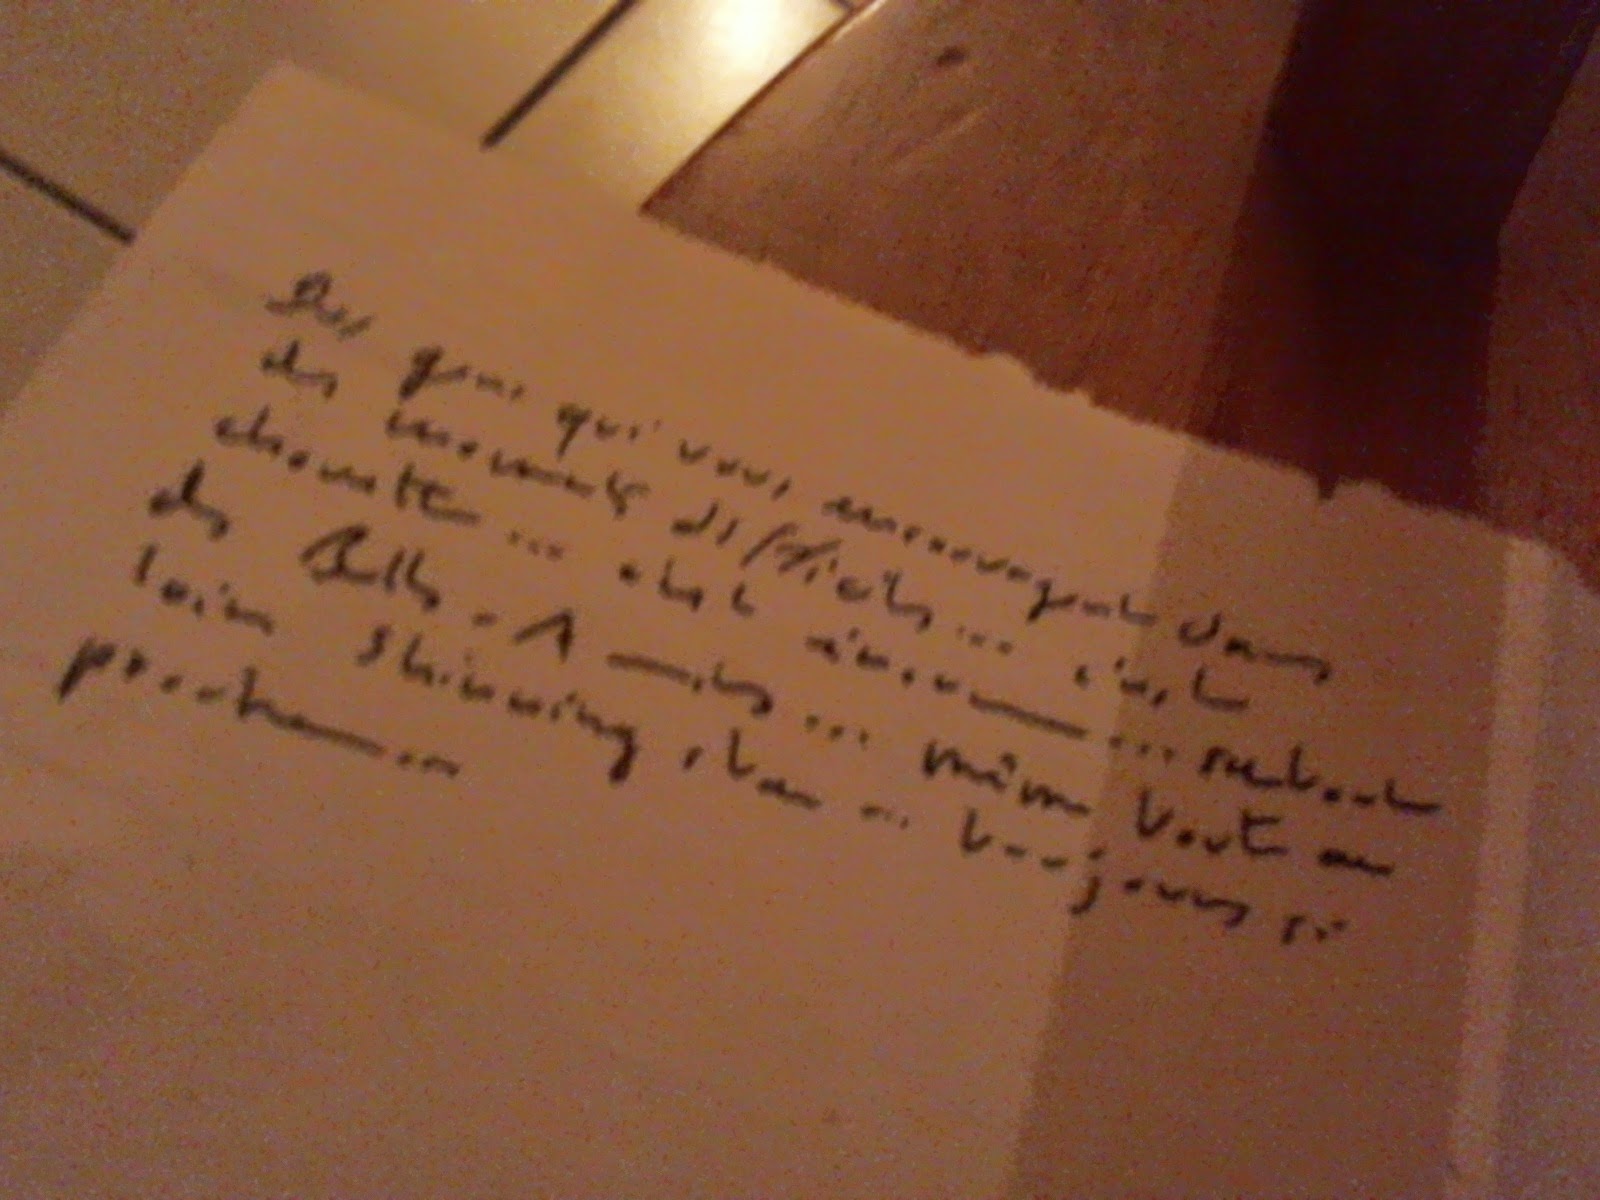 Des gens qui vous encouragent dans
des moments difficiles... c'est
chouette... c'est énorme... surtout
des Belles Âmes... même tout au
loin Shinning star... toujours si
proche...